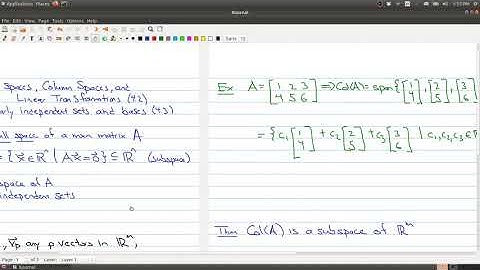 Applications Places
Xournal
File Edit View Page Tools Options Help
Spaces, Column Spaces, and
Linear Transformations (4.2)
independent sets and bases (4.3)
space of a mxn matrix A
= {x⃗ ∈ ℝⁿ | Ax⃗ = 0⃗} ⊆ ℝⁿ (subspace)
space of A
independent sets
v⃗p any p vectors in ℝⁿ,
Ex A = [1 2 3; 4 5 6] ⇒ Col(A) = span{[1; 4], [2; 5], [3; 6]
= {c₁[1; 4] + c₂[2; 5] + c₃[3; 6] | c₁, c₂, c₃ ∈
Thm Col(A) is a subspace of ℝᵐ
Page 1 of 3 Layer 1
Xournal